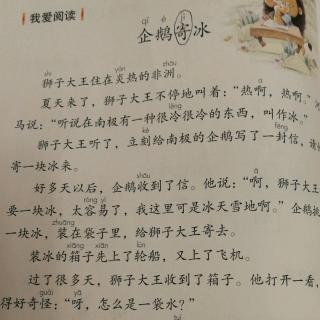 我爱阅读
qǐ é jì
企鹅寄冰
shī yán zhōu
狮子大王住在炎热的非洲。
a
夏天来了，狮子大王不停地叫着：“热啊，热啊。”
lěng
马说：“听说在南极有一种很冷很冷的东西，叫作冰。”
kè fēng
狮子大王听了，立刻给南极的企鹅写了一封信，请
寄一块冰来。
shōu ā
好多天以后，企鹅收到了信。他说：“啊，狮子大王
róng yì
要一块冰，太容易了，我这里可是冰天雪地啊。”企鹅挑
zhuāng
一块冰，装在袋子里，给狮子大王寄去。
xiāng xiān lún
装冰的箱子先上了轮船，又上了飞机。
过了很多天，狮子大王收到了箱子。他打开一看，
guài yā
得好奇怪：“呀，怎么是一袋水？”